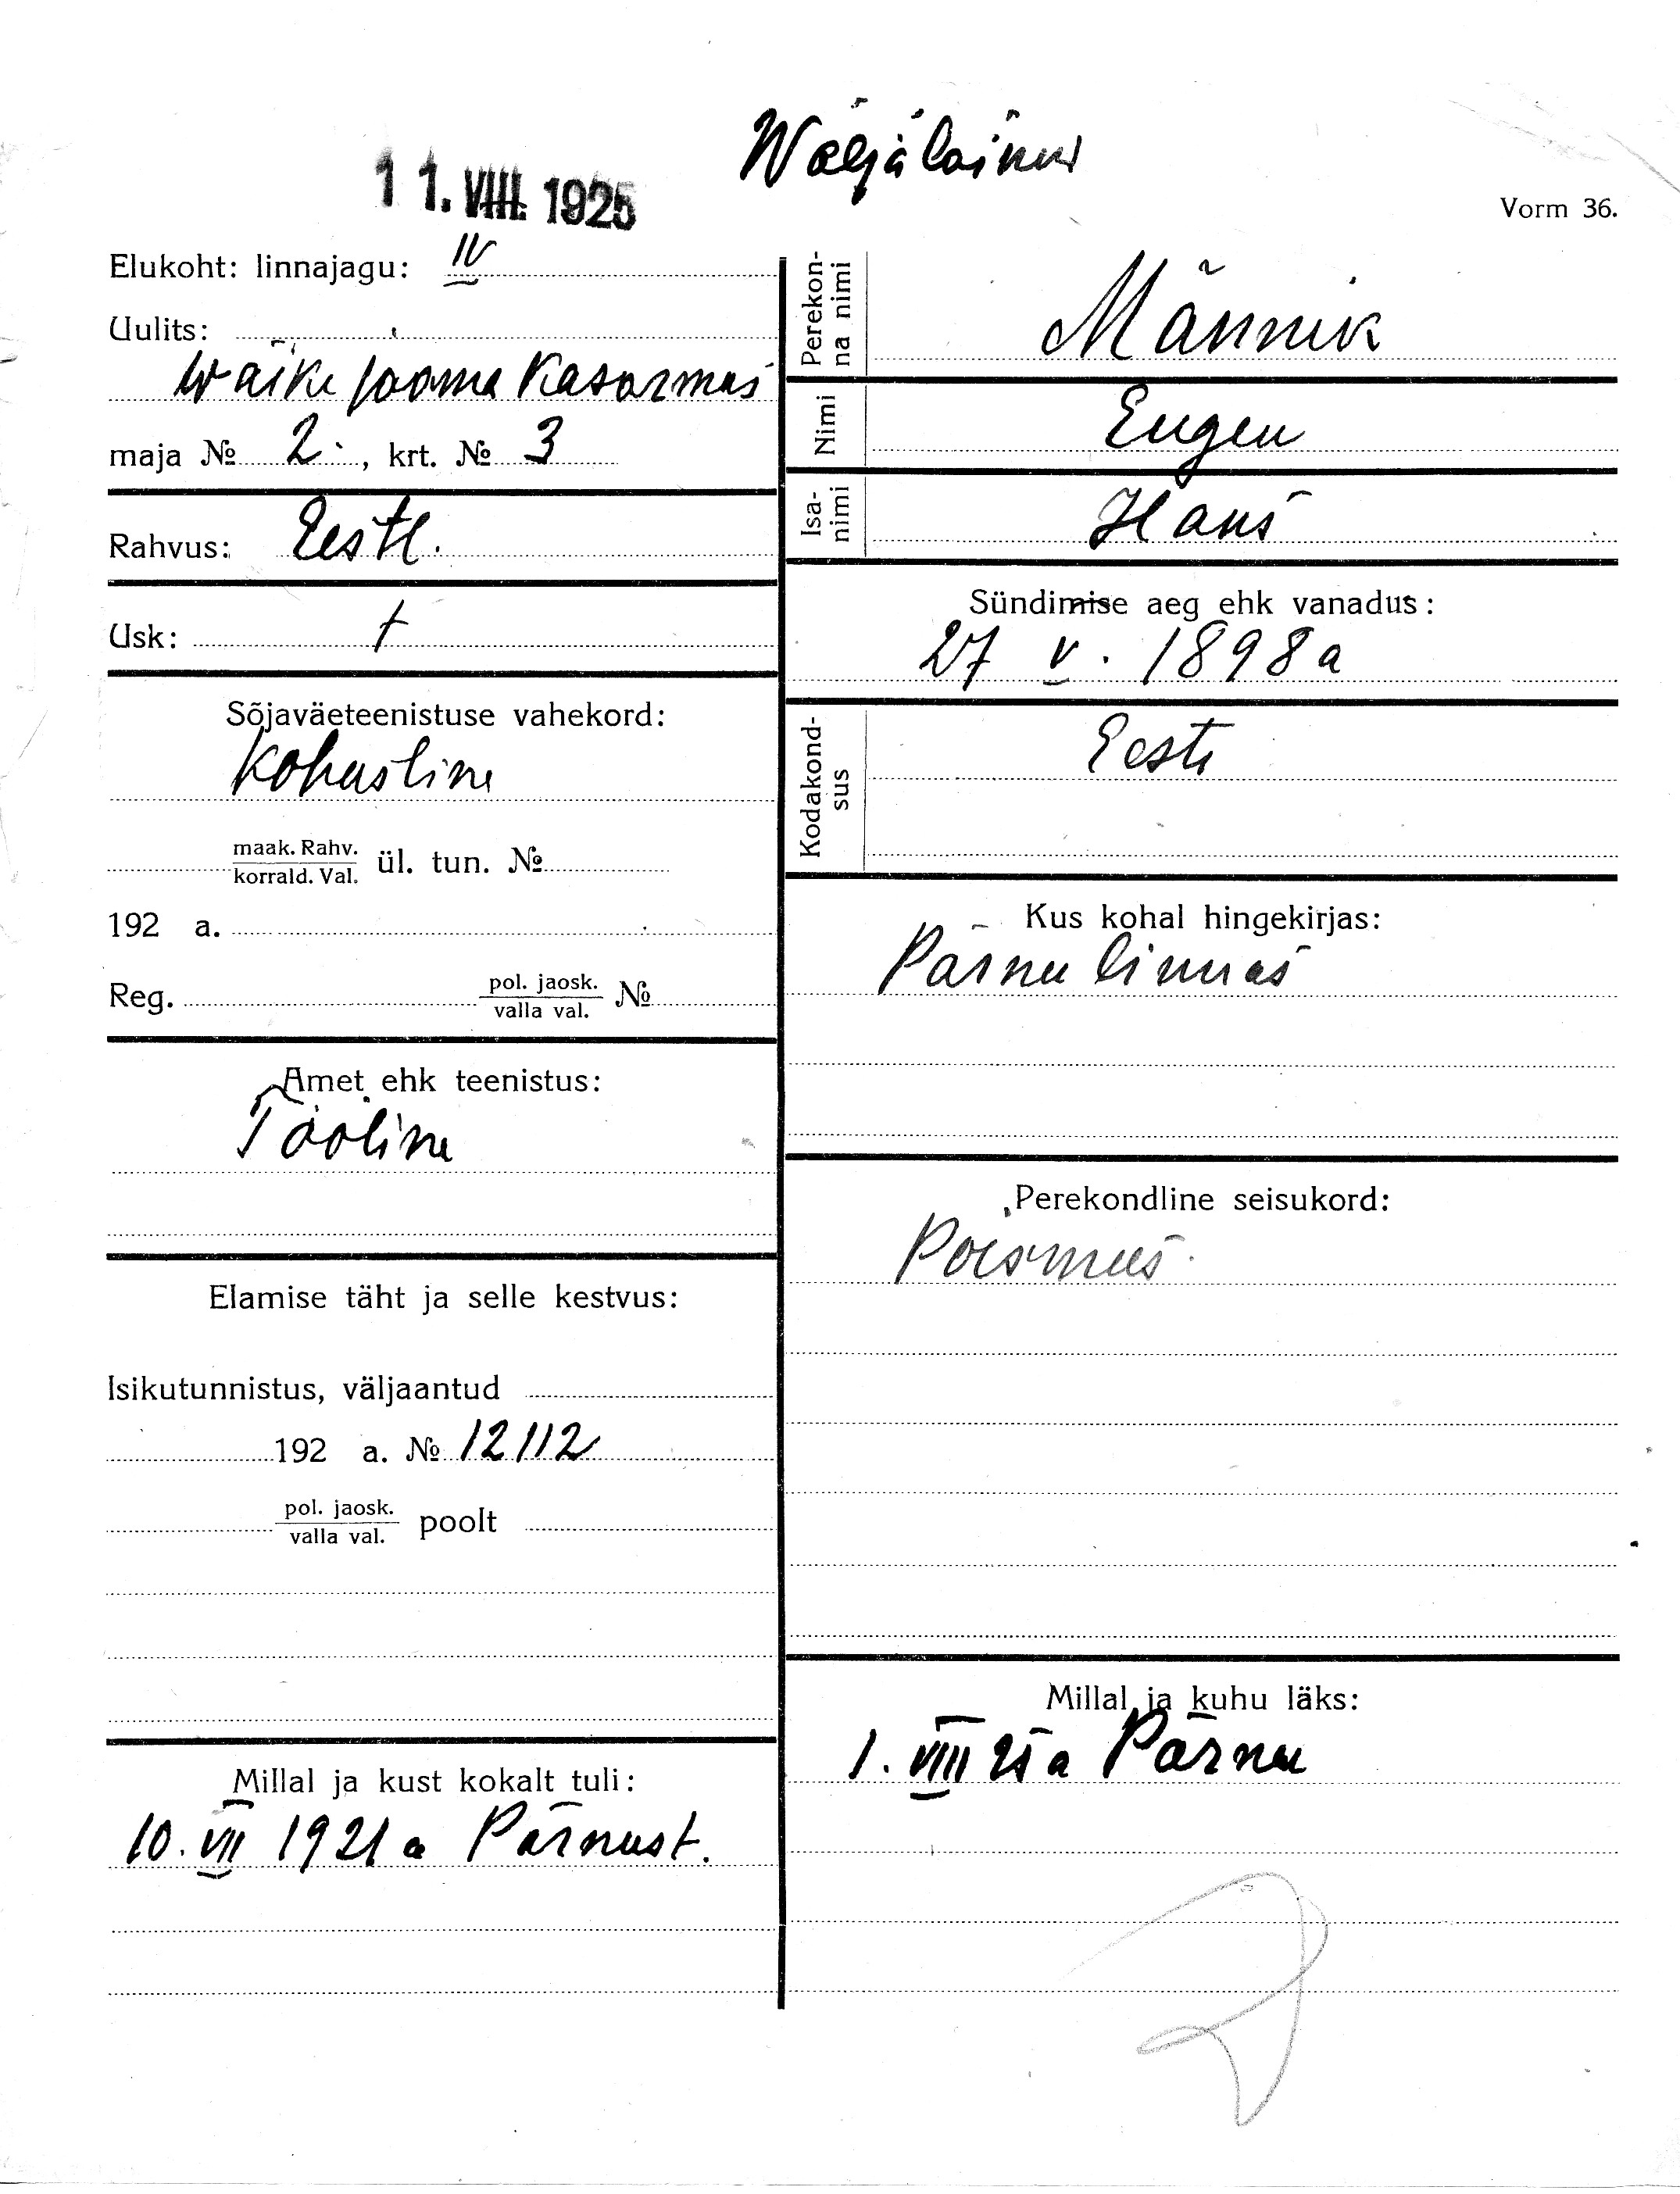 Wäljäläinud
11. VIII. 1925
Vorm 36.
Elukoht: linnajagu: IV
Uulits:
Wäike jaama Kasarmus
maja № 2., krt. № 3
Rahvus: Eestl.
Usk: †
Sõjaväeteenistuse vahekord:
Kohusline
maak. Rahv.
korrald. Val. ül. tun. №
192 a.
Reg. pol. jaosk.
valla val. №
Amet ehk teenistus:
Tööline
Elamise täht ja selle kestvus:
Isikutunnistus, väljaantud
192 a. № 12112
pol. jaosk.
valla val. poolt
Millal ja kust kokalt tuli:
10. VII 1921 a Pärnust.
Perekon-
na nimi
Männik
Nimi Eugen
Isa-
nimi
Hans
Sündimise aeg ehk vanadus:
27 V. 1898 a
Kodakond-
sus
Eesti
Kus kohal hingekirjas:
Pärnu linnas
Perekondline seisukord:
Poismees.
Millal ja kuhu läks:
1. VIII 25 a Pärnu